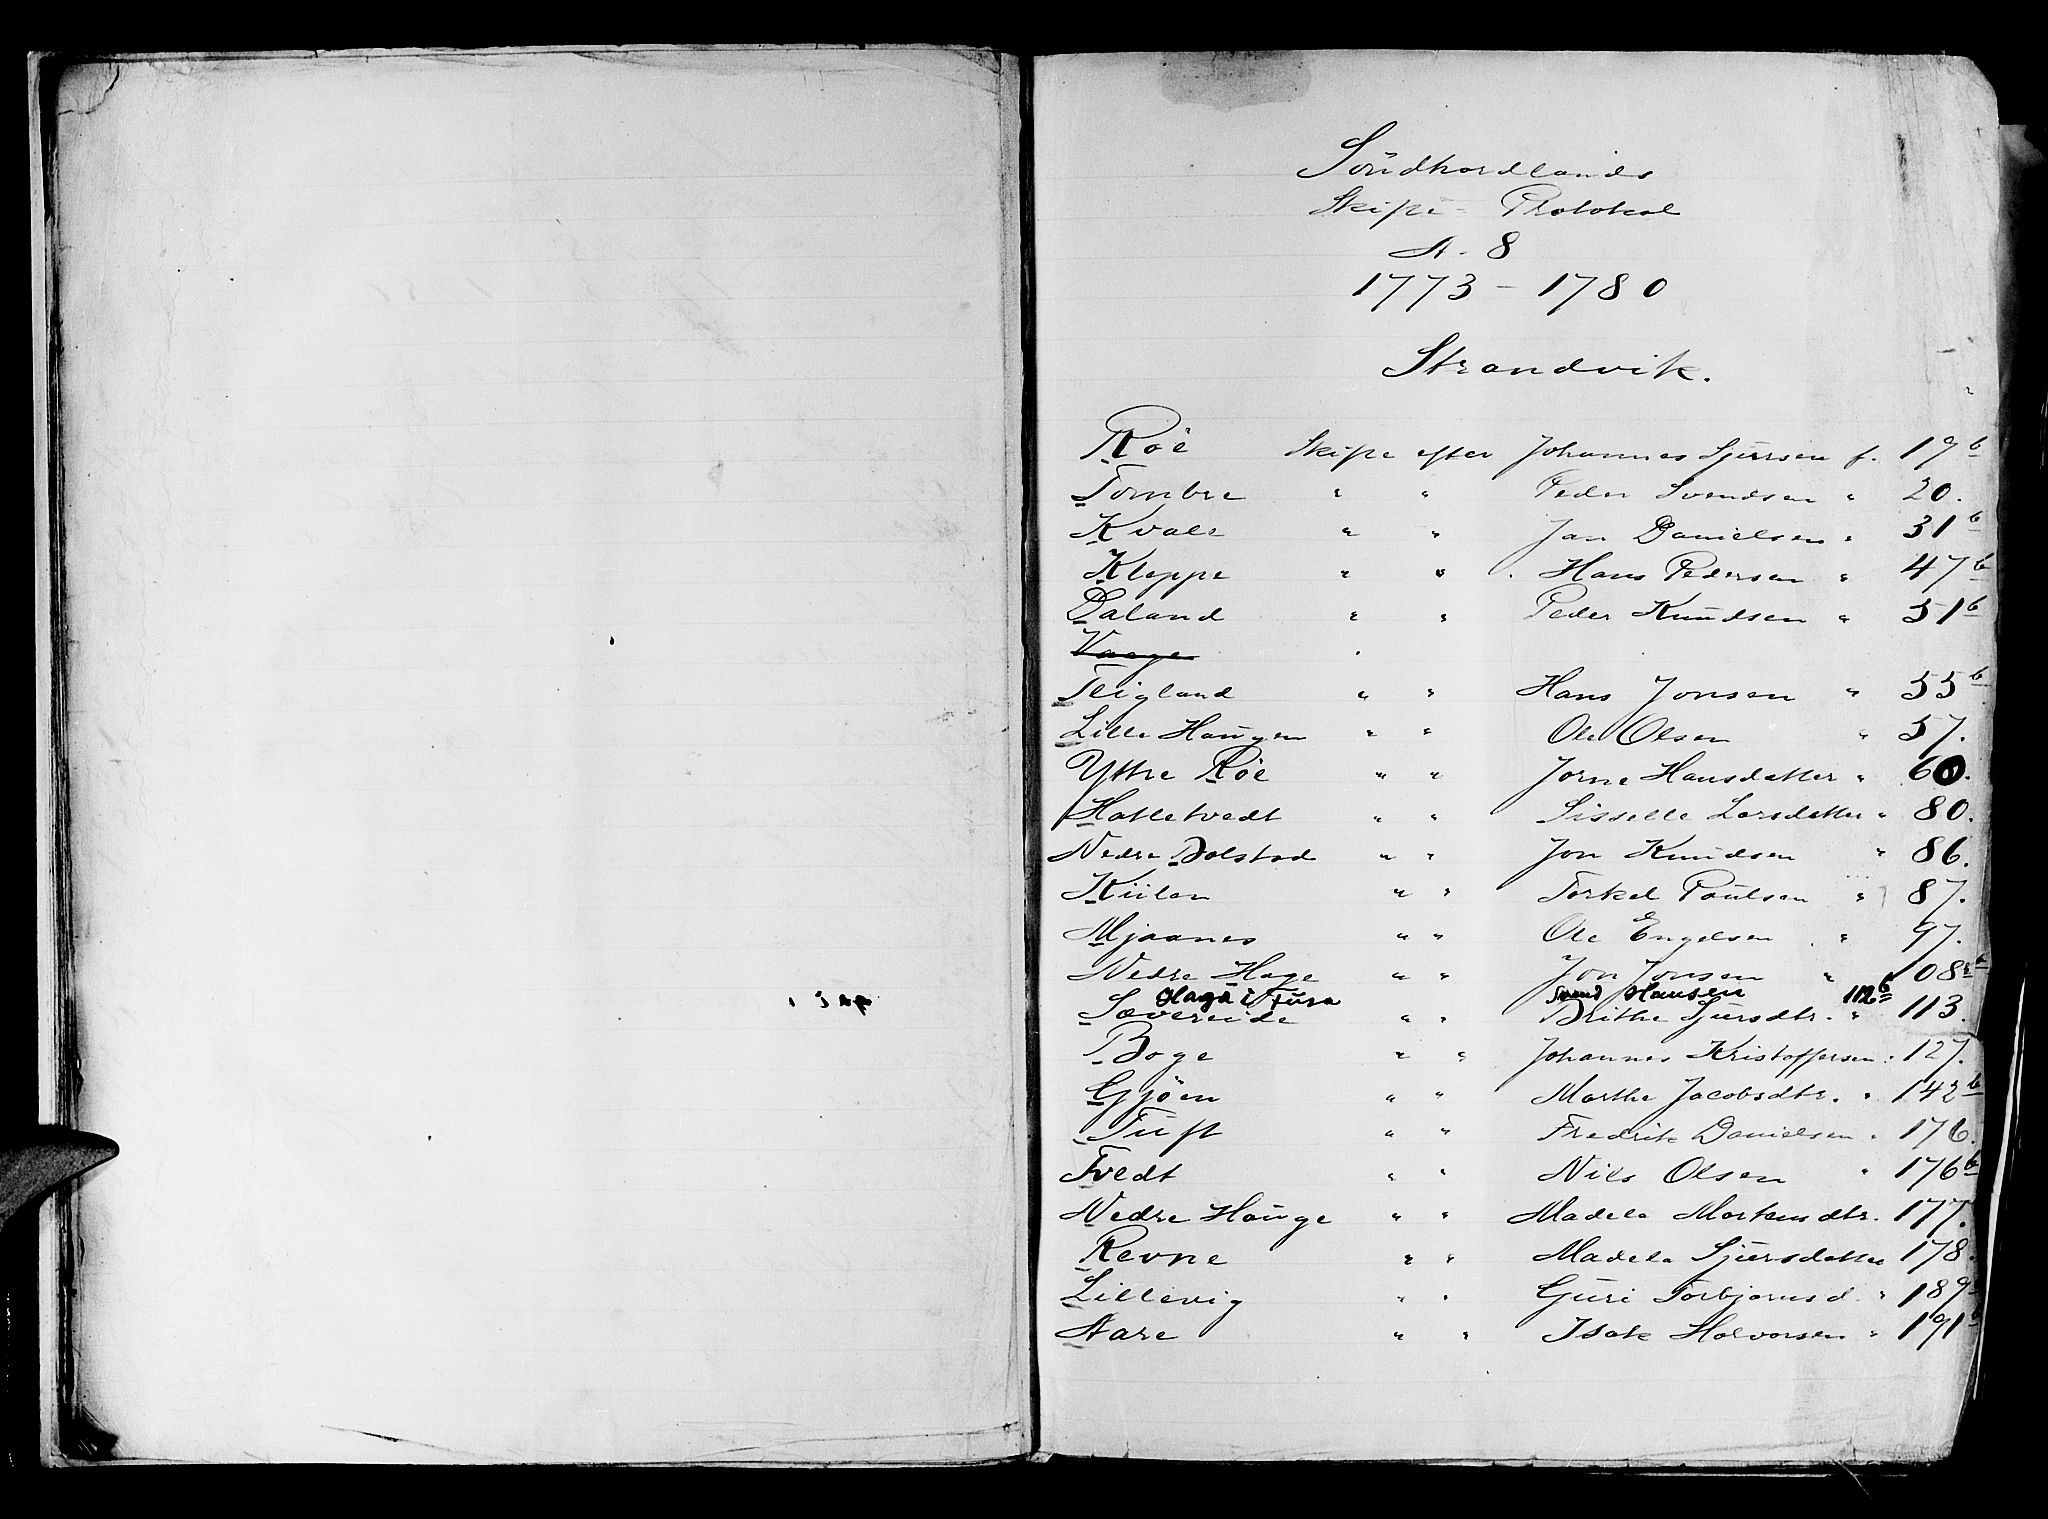 Söndhordlands
Skifte-Protokol
A. 8
1773 - 1780
Strandvik.
Röe Skifte efter Johannes Sjursen f. 19b
Tombre " " Peder Svendsen " 20.
Kvale " " Jan Danielsen " 31b
Kleppe " " Hans Pedersen " 47b
Daland " " Peder Knudsen " 51b
Vaage
Teigland " " Hans Jonsen " 55b
Lille Haugen " " Ole Olsen " 57.
Yttre Röe " " Jorne Hansdatter " 60.
Hatletvedt " " Sisselle Larsdatter " 80.
Nedre Bolstad " " Jon Knudsen " 86.
Kiilen " " Torkel Poulsen " 87.
Mjaanes " " Ole Engelsen " 97.
Nedre Hage " " Jon Jonsen " 108b
Haga i Fusa Svend Hansen 112b
Sævereide " " Brithe Sjursdtr. " 113.
Boge " " Johannes Kristoffersen " 127.
Gjöen " " Marthe Jacobsdtr. " 142b
Tuft " " Fredrik Danielsen " 176.
Tvedt " " Nils Olsen " 176b
Nedre Hauge " " Madela Mortensdtr. 177.
Revne " " Madela Sjursdatter 178.
Lillevig " " Guri Torbjornsd. " 189
Aare " " Isak Halvorsen " 191b